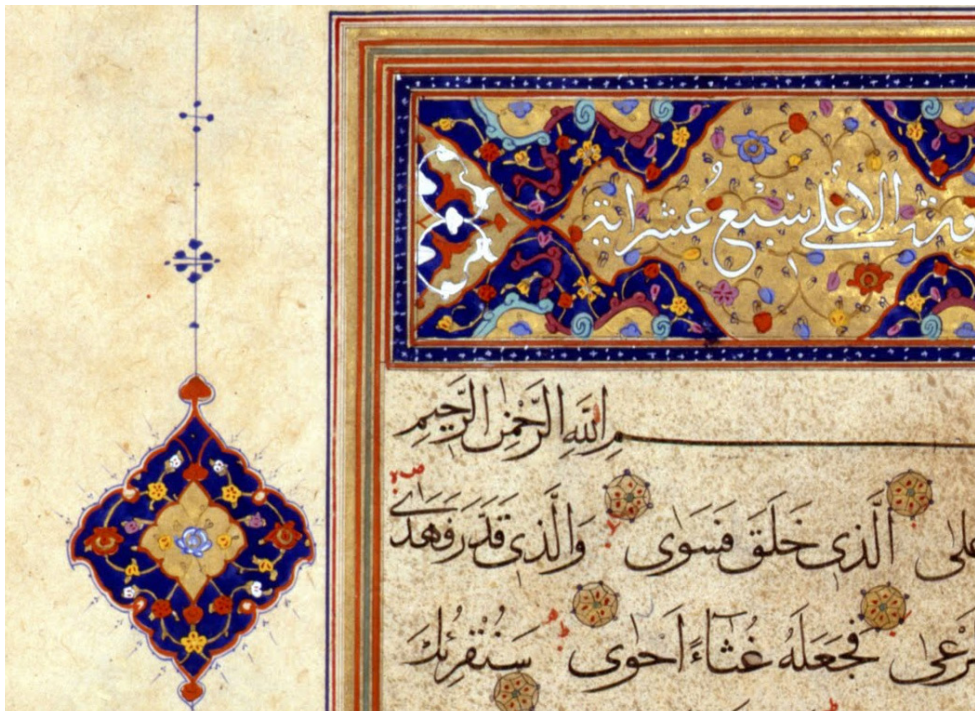 الاعلى سبع عشر اية
مِ اللَّهِ الرَّحْمٰنِ الرَّحِيمِ
على الَّذِى خَلَقَ فَسَوّٰى وَالَّذِى قَدَّرَ فَهَدٰى
فَجَعَلَهُ غُثَآءً اَحْوٰى سَنُقْرِئُكَ